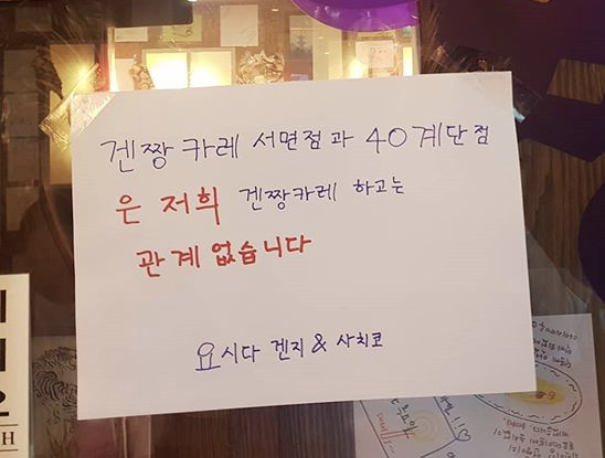 겐짱 카레 서면점과 40계단점
은 저희 겐짱카레 하고는
관계 없습니다
요시다 겐지 & 사치코